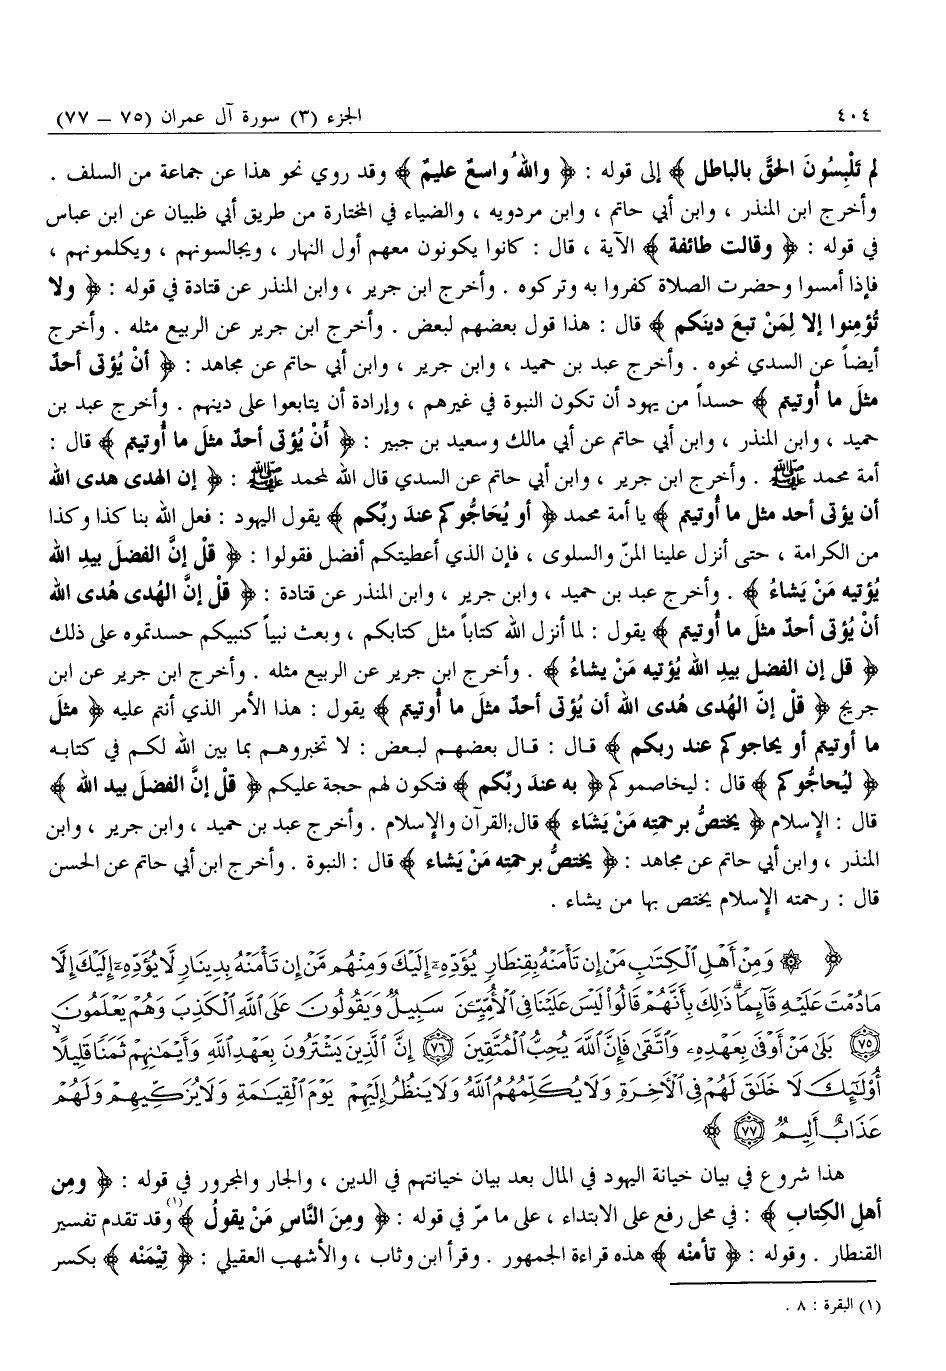 ٤٠٤ الجزء (٣) سورة آل عمران (٧٥ – ٧٧)
لم تَلْبِسُونَ الحقَّ بالباطل ﴾ إلى قوله : ﴿ واللهُ واسعٌ عليمٌ ﴾ وقد روي نحو هذا عن جماعة من السلف .
وأخرج ابن المنذر ، وابن أبي حاتم ، وابن مردويه ، والضياء في المختارة من طريق أبي ظبيان عن ابن عباس
في قوله : ﴿ وقالت طائفة ﴾ الآية ، قال : كانوا يكونون معهم أول النهار ، ويجالسونهم ، ويكلمونهم ،
فإذا أمسوا وحضرت الصلاة كفروا به وتركوه . وأخرج ابن جرير ، وابن المنذر عن قتادة في قوله : ﴿ ولا
تُؤمِنوا إلا لِمَنْ تبعَ دينَكم ﴾ قال : هذا قول بعضهم لبعض . وأخرج ابن جرير عن الربيع مثله . وأخرج
أيضاً عن السدي نحوه . وأخرج عبد بن حميد ، وابن جرير ، وابن أبي حاتم عن مجاهد : ﴿ أنْ يُؤتى أحدٌ
مثلَ ما أُوتيتم ﴾ حسداً من يهود أن تكون النبوة في غيرهم ، وإرادة أن يتابعوا على دينهم . وأخرج عبد بن
حميد ، وابن المنذر ، وابن أبي حاتم عن أبي مالك وسعيد بن جبير : ﴿ أَنْ يُؤتى أحدٌ مثلَ ما أُوتيتم ﴾ قال :
أمة محمد ﷺ . وأخرج ابن جرير ، وابن أبي حاتم عن السدي قال الله لمحمد ﷺ : ﴿ إن الهدى هدى الله
أن يؤتى أحد مثل ما أُوتيتم ﴾ يا أمة محمد ﴿ أو يُحَاجُّوكم عند ربِّكم ﴾ يقول اليهود : فعل الله بنا كذا وكذا
من الكرامة ، حتى أنزل علينا المنّ والسلوى ، فإن الذي أعطيتكم أفضل فقولوا : ﴿ قلْ إنَّ الفضلَ بيدِ الله
يُؤتيه مَنْ يَشاءُ ﴾ . وأخرج عبد بن حميد ، وابن جرير ، وابن المنذر عن قتادة : ﴿ قلْ إنَّ الهُدى هُدى الله
أنْ يُؤتى أحدٌ مثلَ ما أُوتيتم ﴾ يقول : لما أنزل الله كتاباً مثل كتابكم ، وبعث نبياً كنبيكم حسدتموه على ذلك
﴿ قل إن الفضل بيدِ الله يُؤتيه مَنْ يشاءُ ﴾ . وأخرج ابن جرير عن الربيع مثله . وأخرج ابن جرير عن ابن
جريج ﴿ قلْ إنّ الهُدى هُدى الله أن يُؤتى أحدٌ مثلَ ما أُوتيتم ﴾ يقول : هذا الأمر الذي أنتم عليه ﴿ مثلَ
ما أوتيتم أو يحاجوكم عند ربكم ﴾ قال : قال بعضهم لبعض : لا تخبروهم بما بين الله لكم في كتابه
﴿ ليُحاجُّوكم ﴾ قال : ليخاصموكم ﴿ به عندَ ربِّكم ﴾ فتكون لهم حجة عليكم ﴿ قلْ إنَّ الفضلَ بيد الله ﴾
قال : الإسلام ﴿ يختصُّ برحمتِه مَنْ يَشَاء ﴾ قال : القرآن والإسلام . وأخرج عبد بن حميد ، وابن جرير ، وابن
المنذر ، وابن أبي حاتم عن مجاهد : ﴿ يختصُّ برحمتِه مَنْ يَشاء ﴾ قال : النبوة . وأخرج ابن أبي حاتم عن الحسن
قال : رحمته الإسلام يختص بها من يشاء .
﴿ ۞ وَمِنْ أَهْلِ ٱلْكِتَٰبِ مَنْ إِن تَأْمَنْهُ بِقِنطَارٍ يُؤَدِّهِۦٓ إِلَيْكَ وَمِنْهُم مَّنْ إِن تَأْمَنْهُ بِدِينَارٍ لَّا يُؤَدِّهِۦٓ إِلَيْكَ إِلَّا
مَا دُمْتَ عَلَيْهِ قَآئِمًا ۗ ذَٰلِكَ بِأَنَّهُمْ قَالُوا۟ لَيْسَ عَلَيْنَا فِى ٱلْأُمِّيِّـۧنَ سَبِيلٌ وَيَقُولُونَ عَلَى ٱللَّهِ ٱلْكَذِبَ وَهُمْ يَعْلَمُونَ
﴿٧٥﴾ بَلَىٰ مَنْ أَوْفَىٰ بِعَهْدِهِۦ وَٱتَّقَىٰ فَإِنَّ ٱللَّهَ يُحِبُّ ٱلْمُتَّقِينَ ﴿٧٦﴾ إِنَّ ٱلَّذِينَ يَشْتَرُونَ بِعَهْدِ ٱللَّهِ وَأَيْمَٰنِهِمْ ثَمَنًا قَلِيلًا
أُو۟لَٰٓئِكَ لَا خَلَٰقَ لَهُمْ فِى ٱلْآخِرَةِ وَلَا يُكَلِّمُهُمُ ٱللَّهُ وَلَا يَنظُرُ إِلَيْهِمْ يَوْمَ ٱلْقِيَٰمَةِ وَلَا يُزَكِّيهِمْ وَلَهُمْ
عَذَابٌ أَلِيمٌ ﴿٧٧﴾ ﴾
هذا شروع في بيان خيانة اليهود في المال بعد بيان خيانتهم في الدين ، والجار والمجرور في قوله : ﴿ ومِن
أهلِ الكِتاب ﴾ : في محل رفع على الابتداء ، على ما مرّ في قوله : ﴿ ومِنَ النَّاسِ مَنْ يقولُ ﴾(١) وقد تقدم تفسير
القنطار . وقوله : ﴿ تأمنْه ﴾ هذه قراءة الجمهور . وقرأ ابن وثاب ، والأشهب العقيلي : ﴿ تِيْمَنْه ﴾ بكسر
(١) البقرة : ٨ .